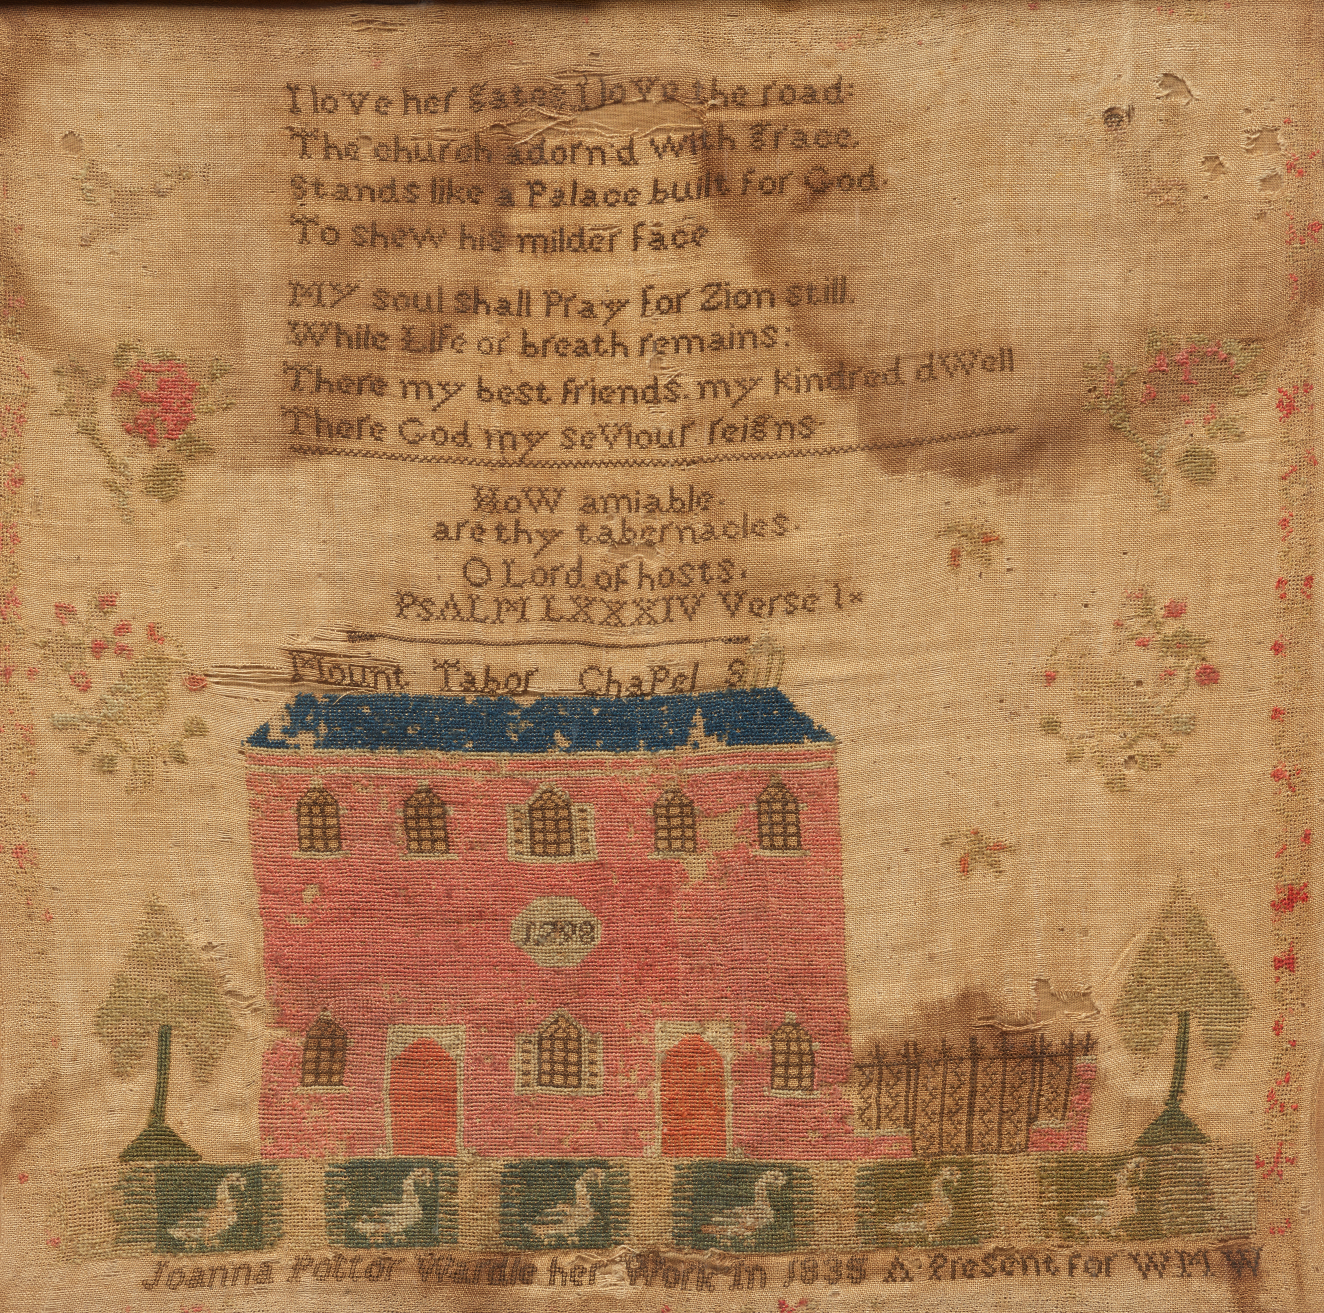 I love her gates I love the road:
The church adorn'd with grace.
Stands like a Palace built for God.
To shew his milder face
MY soul shall Pray for Zion still.
While Life or breath remains:
There my best friends. my kindred dwell
There God my seviour reigns.
HoW amiable.
are thy tabernacles.
O Lord of hosts.
PsALM LXXXIV Verse 1
Mount Tabor ChaPel S
1798
Joanna Pottor Wardle her Work in 1835 A Present for W M W